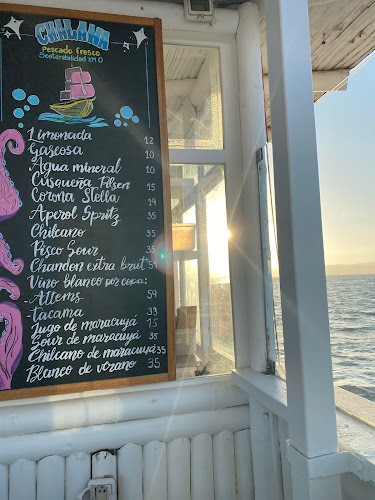 CHALANA
Pescado fresco
Sostenibilidad KM 0
Limonada 12
Gaseosa 10
Agua mineral 10
Cusqueña Pilsen 15
Corona Stella 19
Aperol Spritz 35
Chilcano 35
Pisco Sour 35
Chandon extra brut 57
Vino blanco por copa:
-Attems 59
-Tacama 33
Jugo de maracuyá 15
Sour de maracuyá 35
Chilcano de maracuyá 35
Blanco de verano 35